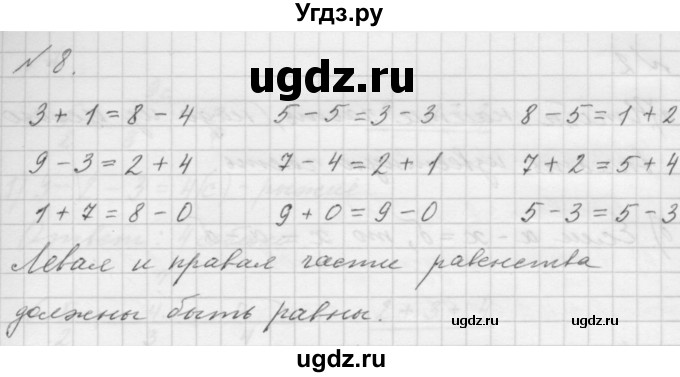 Угдз.ру
№ 8.
ugdz.ru
3 + 1 = 8 - 4    5 - 5 = 3 - 3    8 - 5 = 1 + 2
9 - 3 = 2 + 4    7 - 4 = 2 + 1    7 + 2 = 5 + 4
ugdz.ru
1 + 7 = 8 - 0    9 + 0 = 9 - 0    5 - 3 = 5 - 3
Левая и правая части равенства
должны быть равны.
ugdz.ru ugdz.ru
ugdz.ru